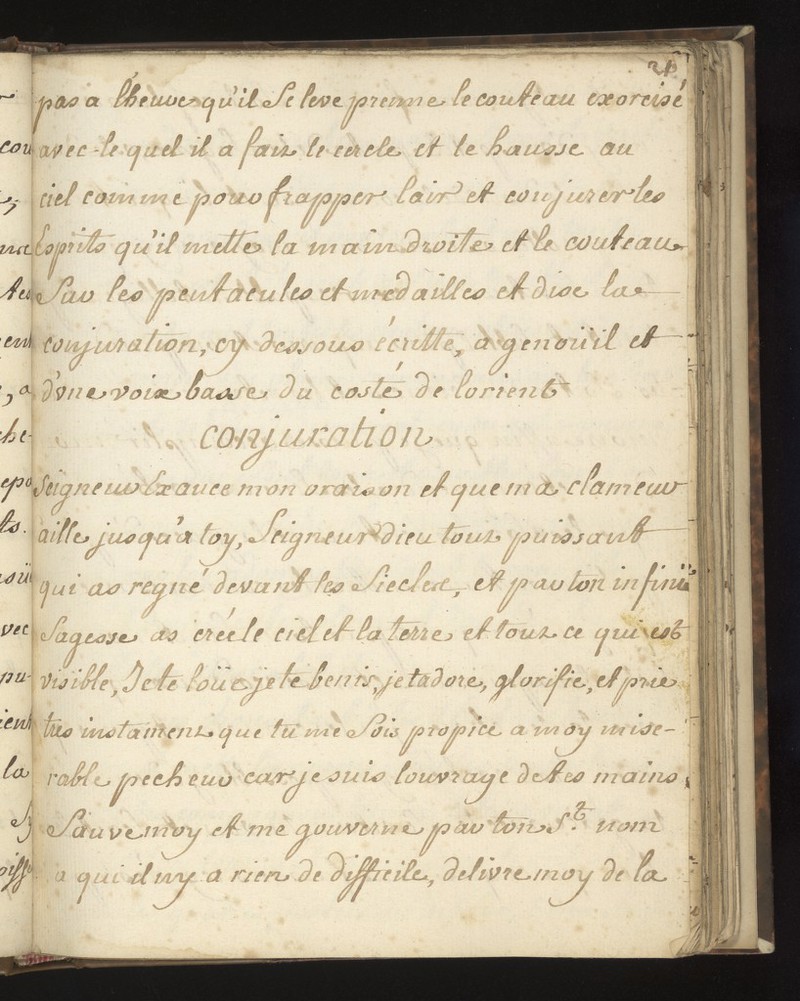 pas a l'heure qu'il Se leve prenne le couteau exorcisé
avec le quel il a fait le cercle et le hausse au
ciel comme pour frapper lair et conjurer les
Esprits qu'il mette la main droite et le couteau
Sur les pentacules et medailles et dise la
conjuration, cy dessous écritte, a genoüil et
d'vne voix basse du costé de lorient
conjuration
Seigneur Exauce mon oraison et que ma clameur
aille jusqu'a toy, Seigneur dieu tout puissant
qui as regné devant les Siecles, et par ton infinie
Sagesse as créé le ciel et la terre et tout ce qui est
visible, Je te loüe je te benis, je tadore, glorifie, et prie
tres instament que tu me Sois propice a moy mise-
rable pecheur car je suis louvrage de tes mains,
Sauve moy et me gouverne par ton St. nom
a qui il ny a rien de difficile, delivre moy de la